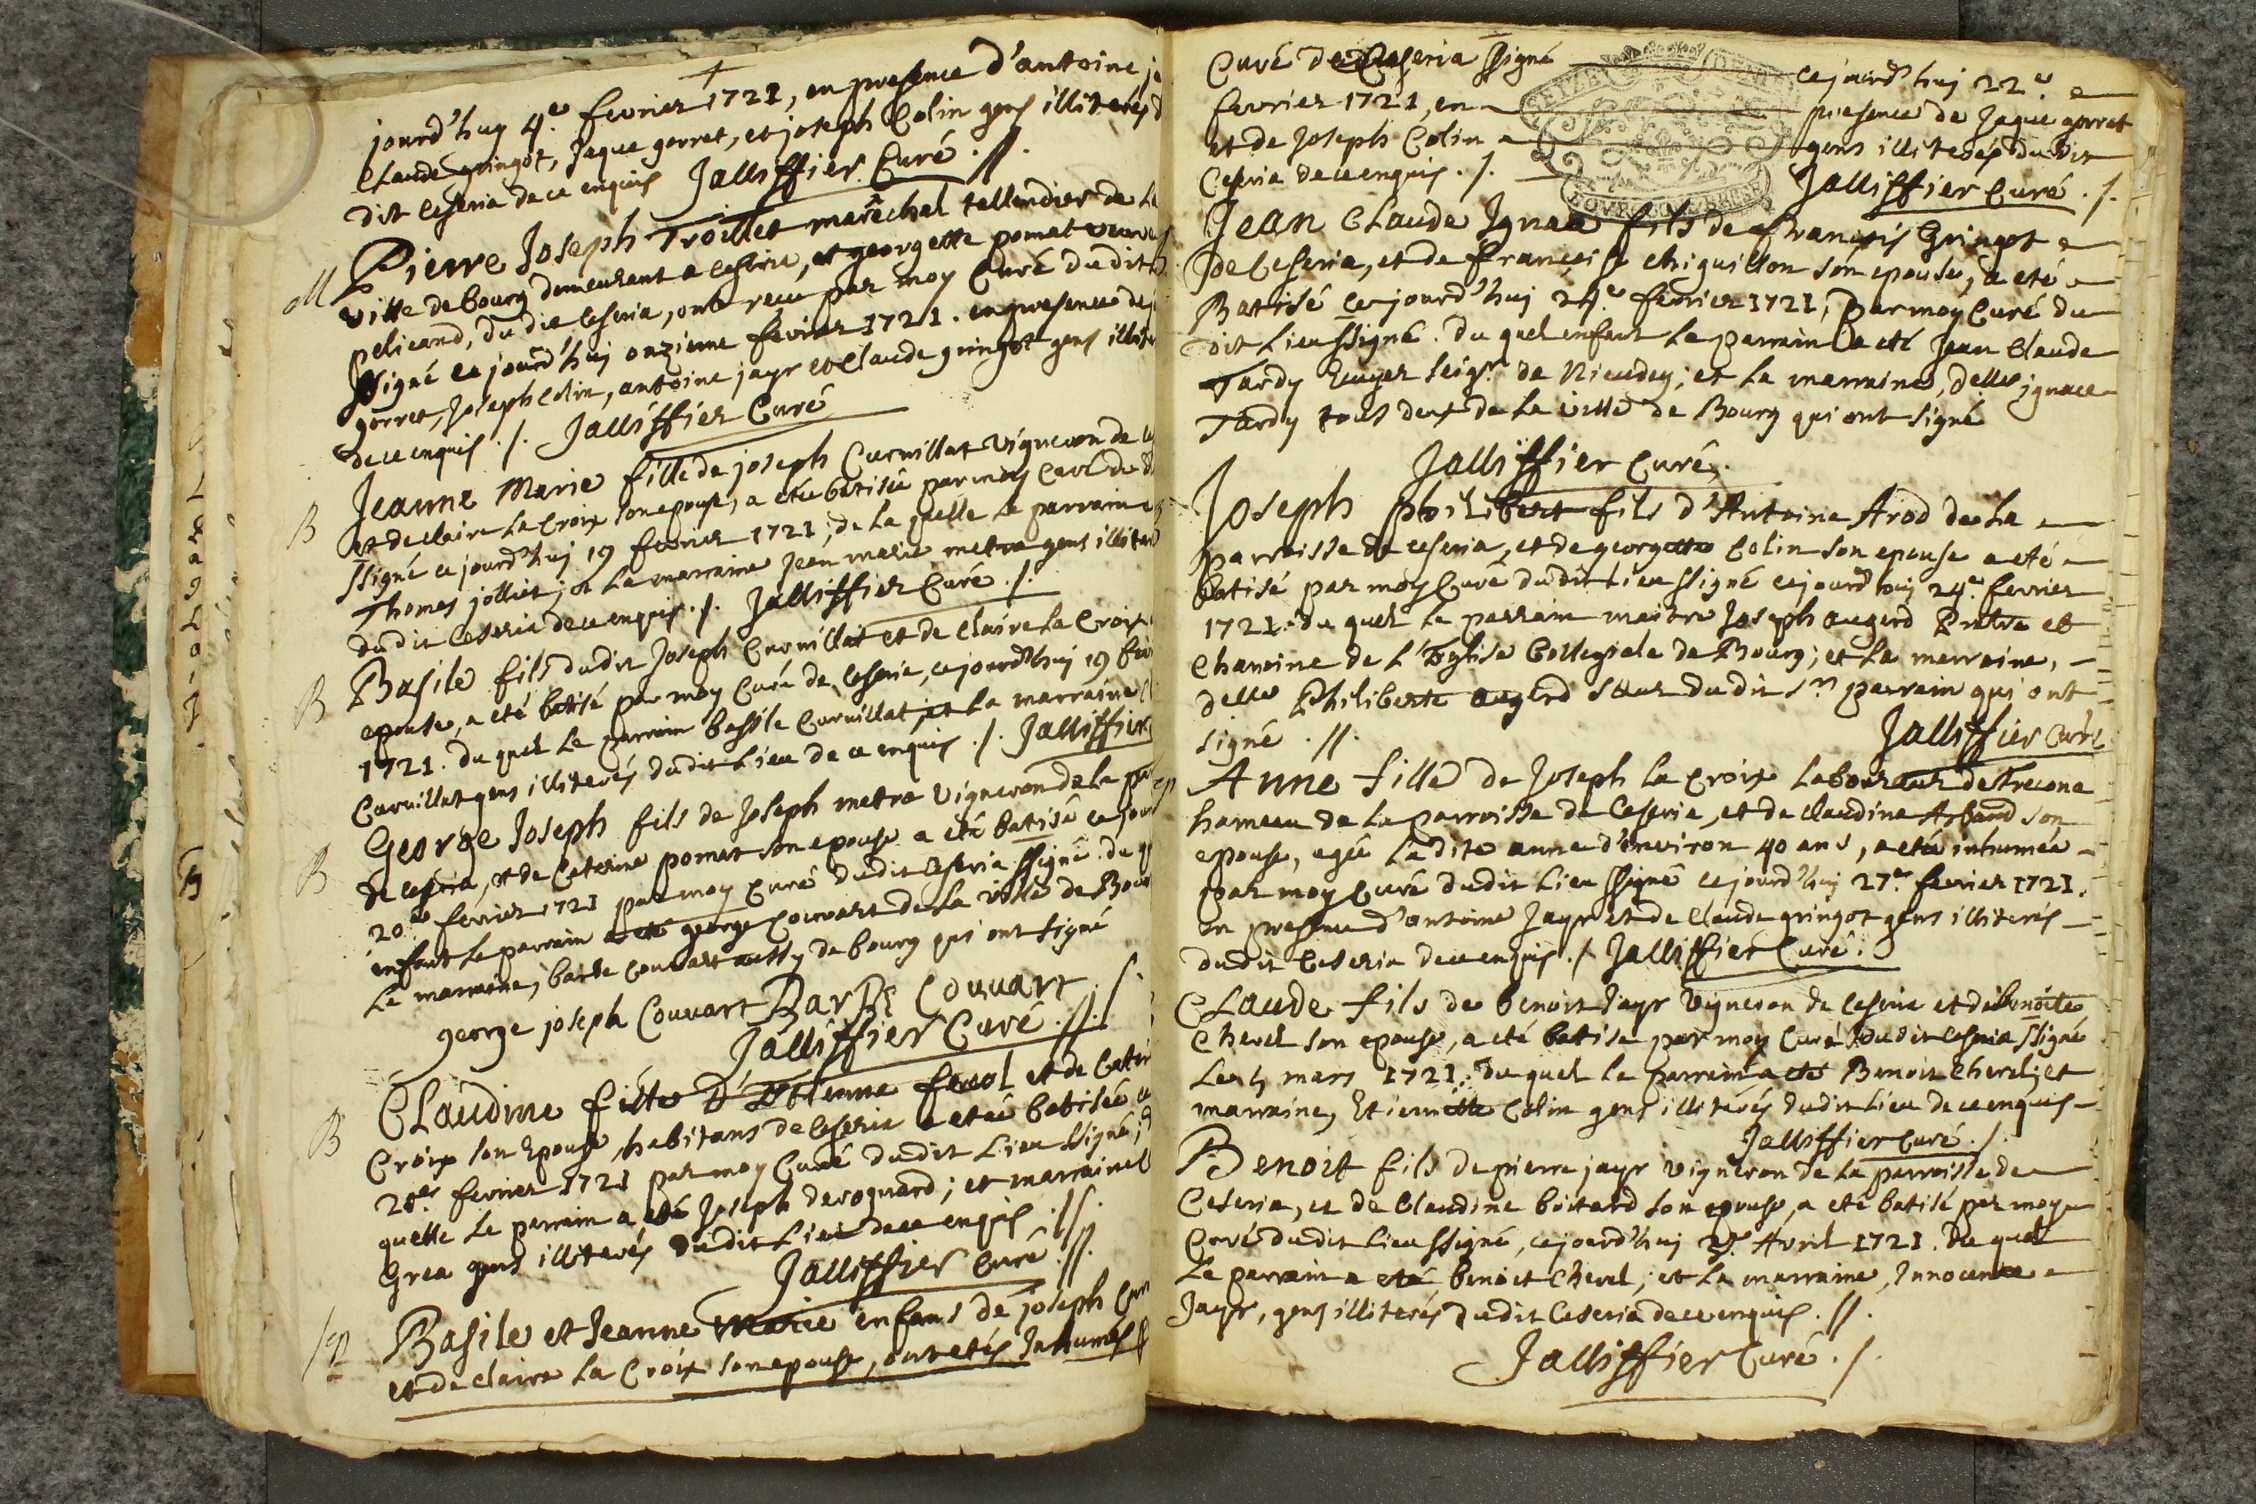 jourd'huy 4e. fevrier 1721, en presence d'antoine
Claude gringot, Jaque gorret, et joseph Colin gens illiterés
dit Ceseria de ce enquis Jallissier Curé .//.
M
Pierre Joseph Troillet marêchal tellendier de La
ville de bourg demeurant a Ceseria, et georgette pomat veuve
pelicand, du dit Ceseria, ont recu par moy Curé dudit
ssigné ce jourd'huj onzieme fevrier 1721. en presence de
gorret, Joseph Colin, antoine jayr et Claude gringot gens illite
de ce enquis ./. Jallissier Curé
B
Jeanne Marie fille de joseph Curnillat Vigneron de
et de claire La Croix son epouse, a eté batisée par moy Curé du
ssigné ce jourd'huj 19 fevrier 1721, de La quelle Le parrain
Thomas jolliet jot La marraine Jean marie metra gens illiter
du dit Ceseria de ce enquis ./. Jallissier Curé ./.
B
Basile fils du dit Joseph Curnillat et de Claire La Croix
epouse, a eté batisé par moy Curé de Ceseria, ce jourd'huj 19 fev
1721. du quel Le parrain bassile Curnillat, et La marraine
Curnillat gens illiterés du dit Lieu de ce enquis ./. Jallissier
B
George Joseph fils de Joseph metra Vigneron de La par
de Ceseria, et de Caterine pomat son epouse a eté batisé ce jour
20e fevrier 1721 par moy Curé dudit Ceseria ssigné. du
enfant Le parrain a eté george Couvart de La ville de Bour
La marraine, barbe Couvart aussy de bourg qui ont signé
george joseph Couvart Barbe Couvart ./.
Jallissier Curé .//.
B
Claudine fille D'Etienne ferrol et de Cater
Croix son Epouse, habitans de Ceseria a eteé batisée ce
20er fevrier 1721 par moy Curé du dit Lieu ssigné;
quelle Le parrain a eté Joseph derognard; et marraine
Grea gens illiterés du dit Lieu de ce enquis .//.
Jallissier Curé .//.
Basile et Jeanne Marie enfans de joseph Cur
et de Claire La Croix son epouse, ont etés Inhumés
Curé de Ceseria ssigné
ce jourd'huj 22e.
fevrier 1721, en
presence de Jaque gorret
et de Joseph Colin
gens illiterés du dit
Ceseria de ce enquis ./.
Jallissier Curé ./.
Jean Claude Ignace fils de francois Gringot
de Ceseria, et de françoise chiguillon son epouse, a eté
Batisé ce jourd'huj 24e fevrier 1721, par moy Curé du
dit Lieu ssigné. du quel enfant Le parrain a eté Jean Claude
Tardy Ecuyer seigr. de Nieudey; et La marraine, delle ignace
Tardy tous deux de La ville de Bourg qui ont signé
Jallissier Curé.
Joseph philibert fils d'Antoine Arod de La
parroisse de ceseria, et de georgette Colin son epouse a eté
batisé par moy Curé dudit Lieu ssigné ce jourd'huj 24e. fevrier
1721. du quel Le parrain maitre Joseph augerd Prêtre et
Chanoine de L'Eglise Collegiale de Bourg; et La marraine,
delle Philiberte augerd sœur du dit sr. parrain qui ont
signé .//.
Jallissier Curé
Anne fille de Joseph La Croix Laboureur de Trecone
hameau de La parroisse de Ceseria, et de Claudine Arband son
epouse, agée La dite anne d'environ 40 ans, a eté inhumée
par moy Curé du dit Lieu ssigné ce jourd'huj 27e. fevrier 1721.
en presence d'antoine Jayr et de Claude gringot gens illiterés
du dit Ceseria de ce enquis ./. Jallissier Curé.
Claude fils de benoit Jayr Vigneron de Ceseria et de benoite
Chevel son epouse, a eté batise par moy Curé du dit Ceseria ssigné
Le 5 mars 1721. du quel Le parrain a eté Benoit Chevel; et
marraine, Etiennette Colin gens illiterés du dit Lieu de ce enquis
Jallissier Curé ./.
Benoit fils de pierre jayr vigneron de La parroisse de
Ceseria, et de Claudine boitard son epouse, a eté batisé par moy
Curé du dit Lieu ssigné, ce jourd'huj 2e. Avril 1721. du quel
Le parrain a eté benoit Chevel, et La marraine, Innocente
Jayr, gens illiterés du dit Ceseria de ce enquis .//.
Jallissier Curé ./.